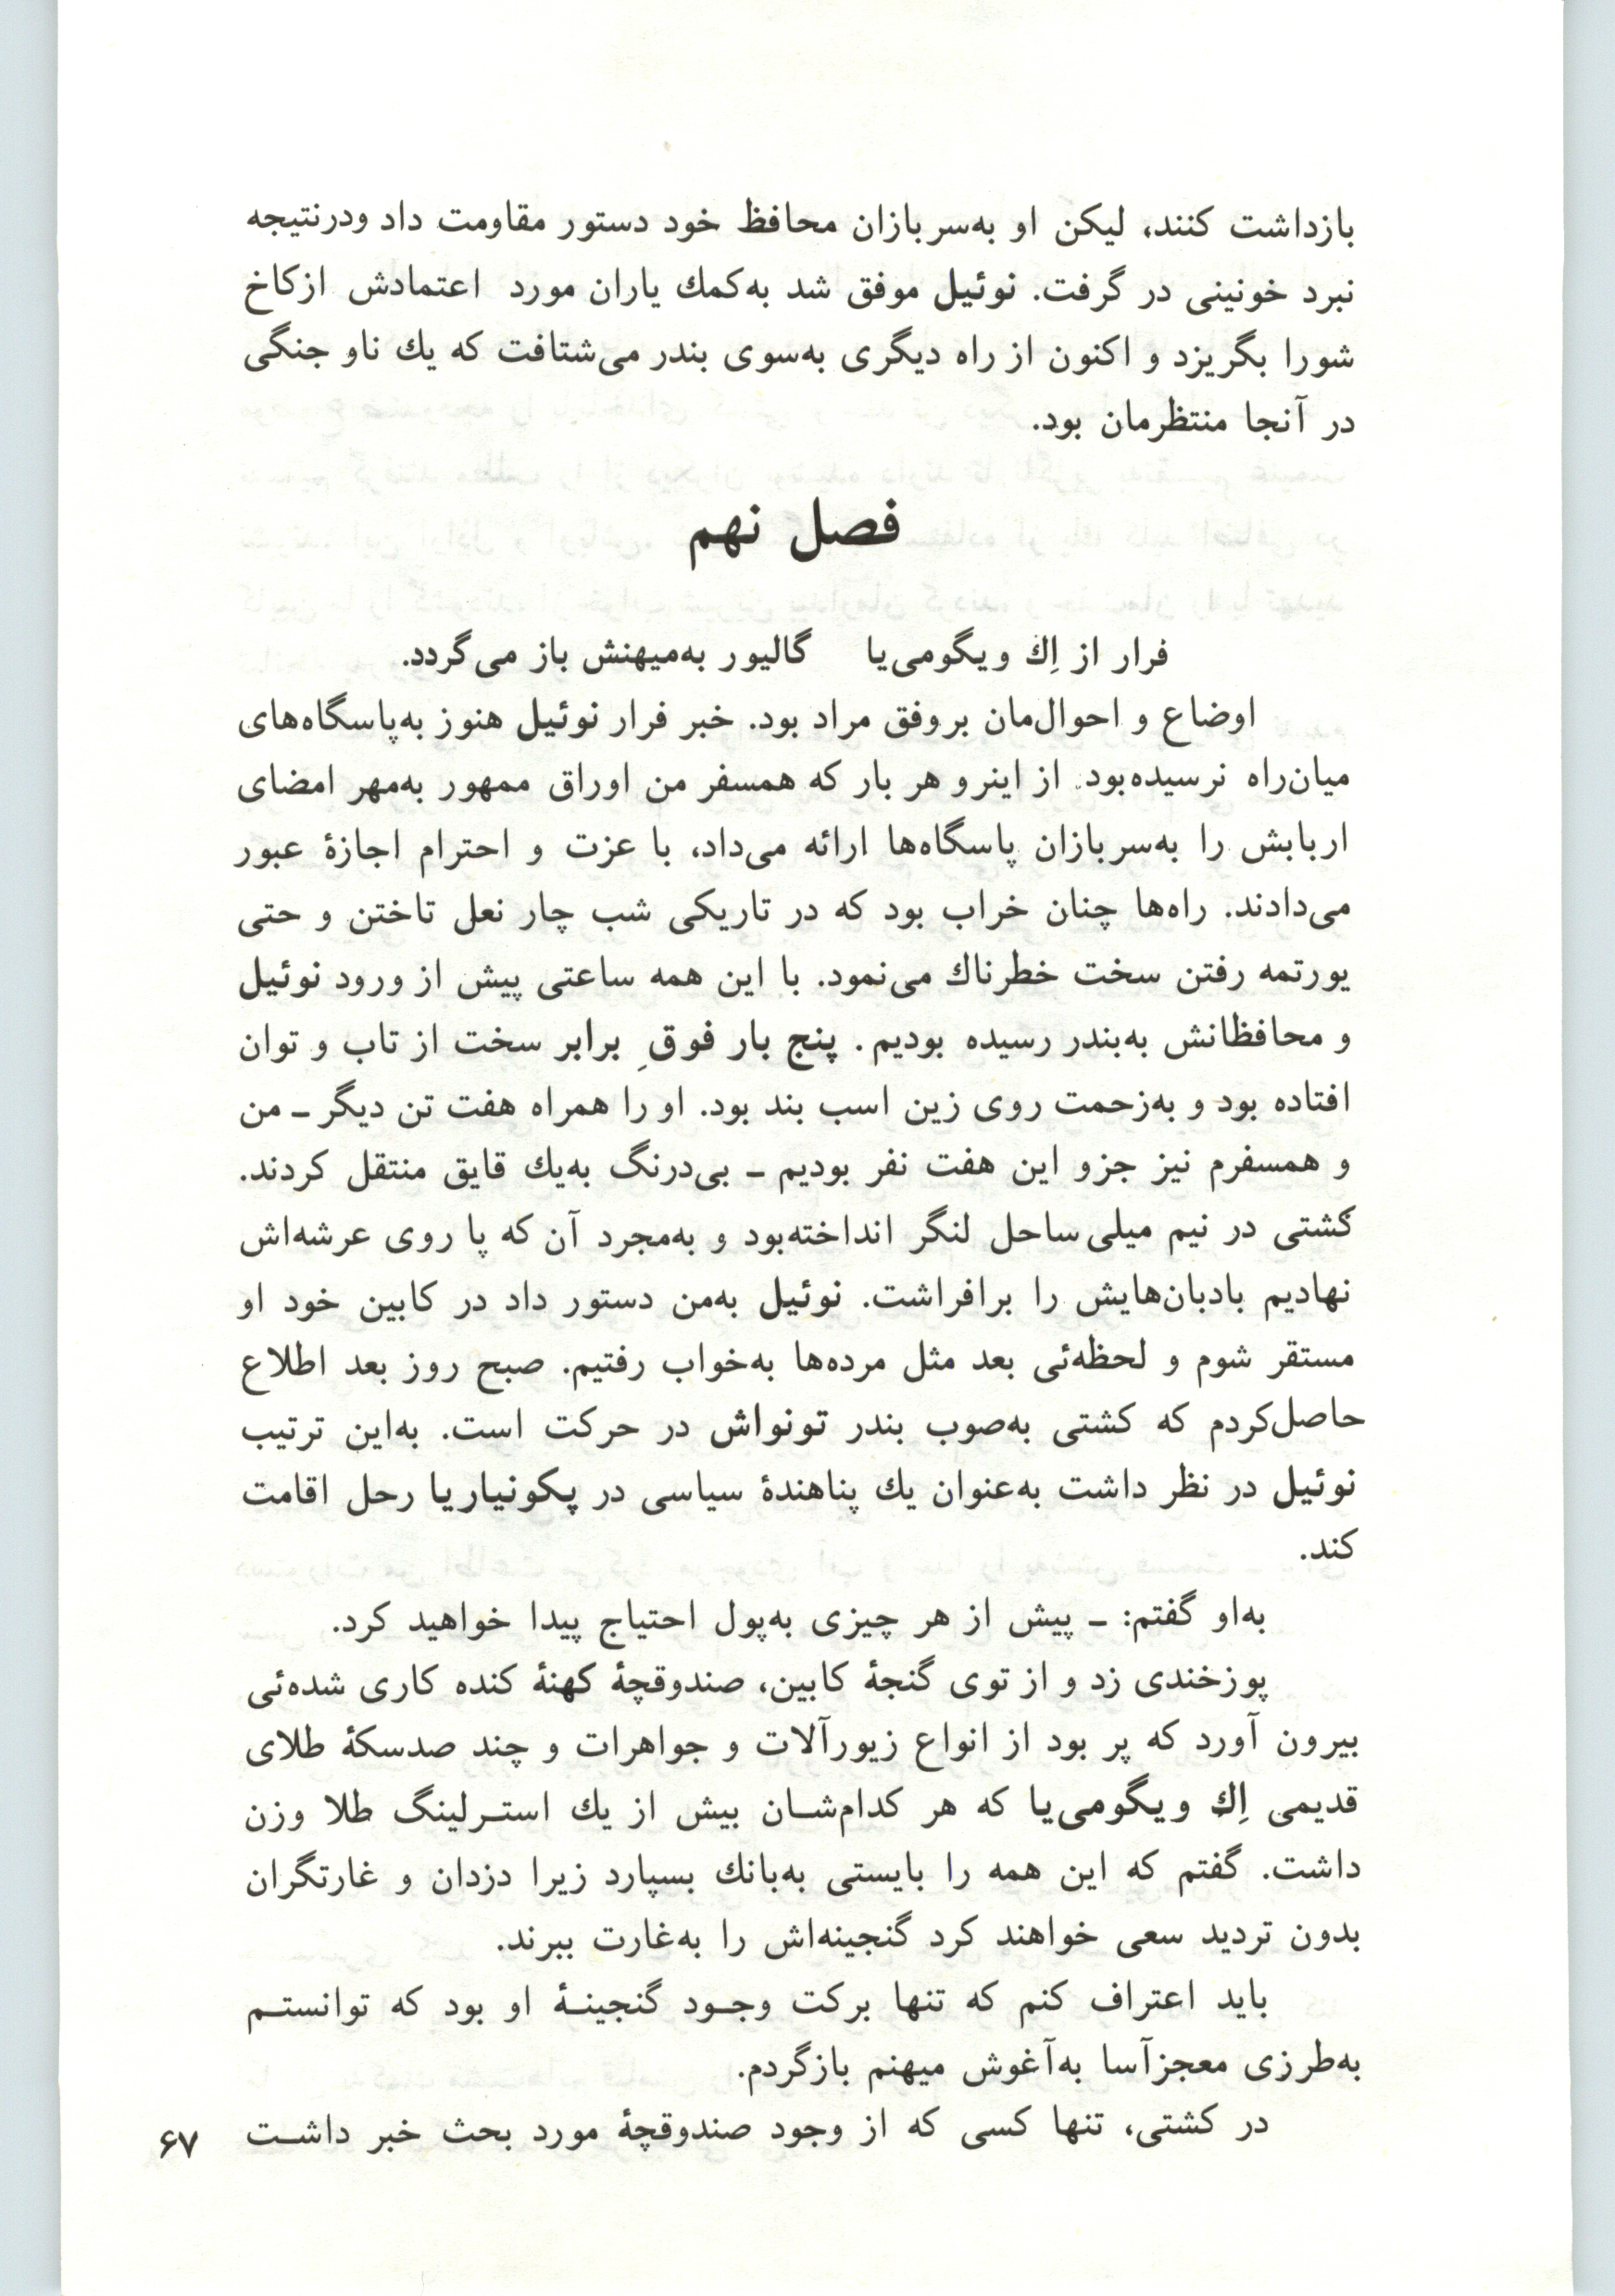 بازداشت کنند، لیکن او به‌سربازان محافظ خود دستور مقاومت داد ودرنتیجه
نبرد خونینی در گرفت. نوئیل موفق شد به‌کمك یاران مورد اعتمادش ازکاخ
شورا بگریزد و اکنون از راه دیگری به‌سوی بندر می‌شتافت که یك ناو جنگی
در آنجا منتظرمان بود.
فصل نهم
فرار از اِك ویگومی‌یا گالیور به‌میهنش باز می‌گردد.
اوضاع و احوال‌مان بروفق مراد بود. خبر فرار نوئیل هنوز به‌پاسگاه‌های
میان‌راه نرسیده‌بود. از اینرو هر بار که همسفر من اوراق ممهور به‌مهر امضای
اربابش را به‌سربازان پاسگاه‌ها ارائه می‌داد، با عزت و احترام اجازهٔ عبور
می‌دادند. راه‌ها چنان خراب بود که در تاریکی شب چار نعل تاختن و حتی
یورتمه رفتن سخت خطرناك می‌نمود. با این همه ساعتی پیش از ورود نوئیل
و محافظانش به‌بندر رسیده بودیم. پنج بار فوقِ برابر سخت از تاب و توان
افتاده بود و به‌زحمت روی زین اسب بند بود. او را همراه هفت تن دیگر ـ من
و همسفرم نیز جزو این هفت نفر بودیم ـ بی‌درنگ به‌یك قایق منتقل کردند.
کشتی در نیم میلی ساحل لنگر انداخته‌بود و به‌مجرد آن که پا روی عرشه‌اش
نهادیم بادبان‌هایش را برافراشت. نوئیل به‌من دستور داد در کابین خود او
مستقر شوم و لحظه‌ئی بعد مثل مرده‌ها به‌خواب رفتیم. صبح روز بعد اطلاع
حاصل‌کردم که کشتی به‌صوب بندر تونواش در حرکت است. به‌این ترتیب
نوئیل در نظر داشت به‌عنوان یك پناهندهٔ سیاسی در پکونیاریا رحل اقامت
کند.
به‌او گفتم: ـ پیش از هر چیزی به‌پول احتیاج پیدا خواهید کرد.
پوزخندی زد و از توی گنجهٔ کابین، صندوقچهٔ کهنهٔ کنده کاری شده‌ئی
بیرون آورد که پر بود از انواع زیورآلات و جواهرات و چند صدسکهٔ طلای
قدیمی اِك ویگومی‌یا که هر کدام‌شـان بیش از یك استـرلینگ طلا وزن
داشت. گفتم که این همه را بایستی به‌بانك بسپارد زیرا دزدان و غارتگران
بدون تردید سعی خواهند کرد گنجینه‌اش را به‌غارت ببرند.
باید اعتراف کنم که تنها برکت وجـود گنجینـهٔ او بود که توانستـم
به‌طرزی معجزآسا به‌آغوش میهنم بازگردم.
در کشتی، تنها کسی که از وجود صندوقچهٔ مورد بحث خبر داشـت
۶۷